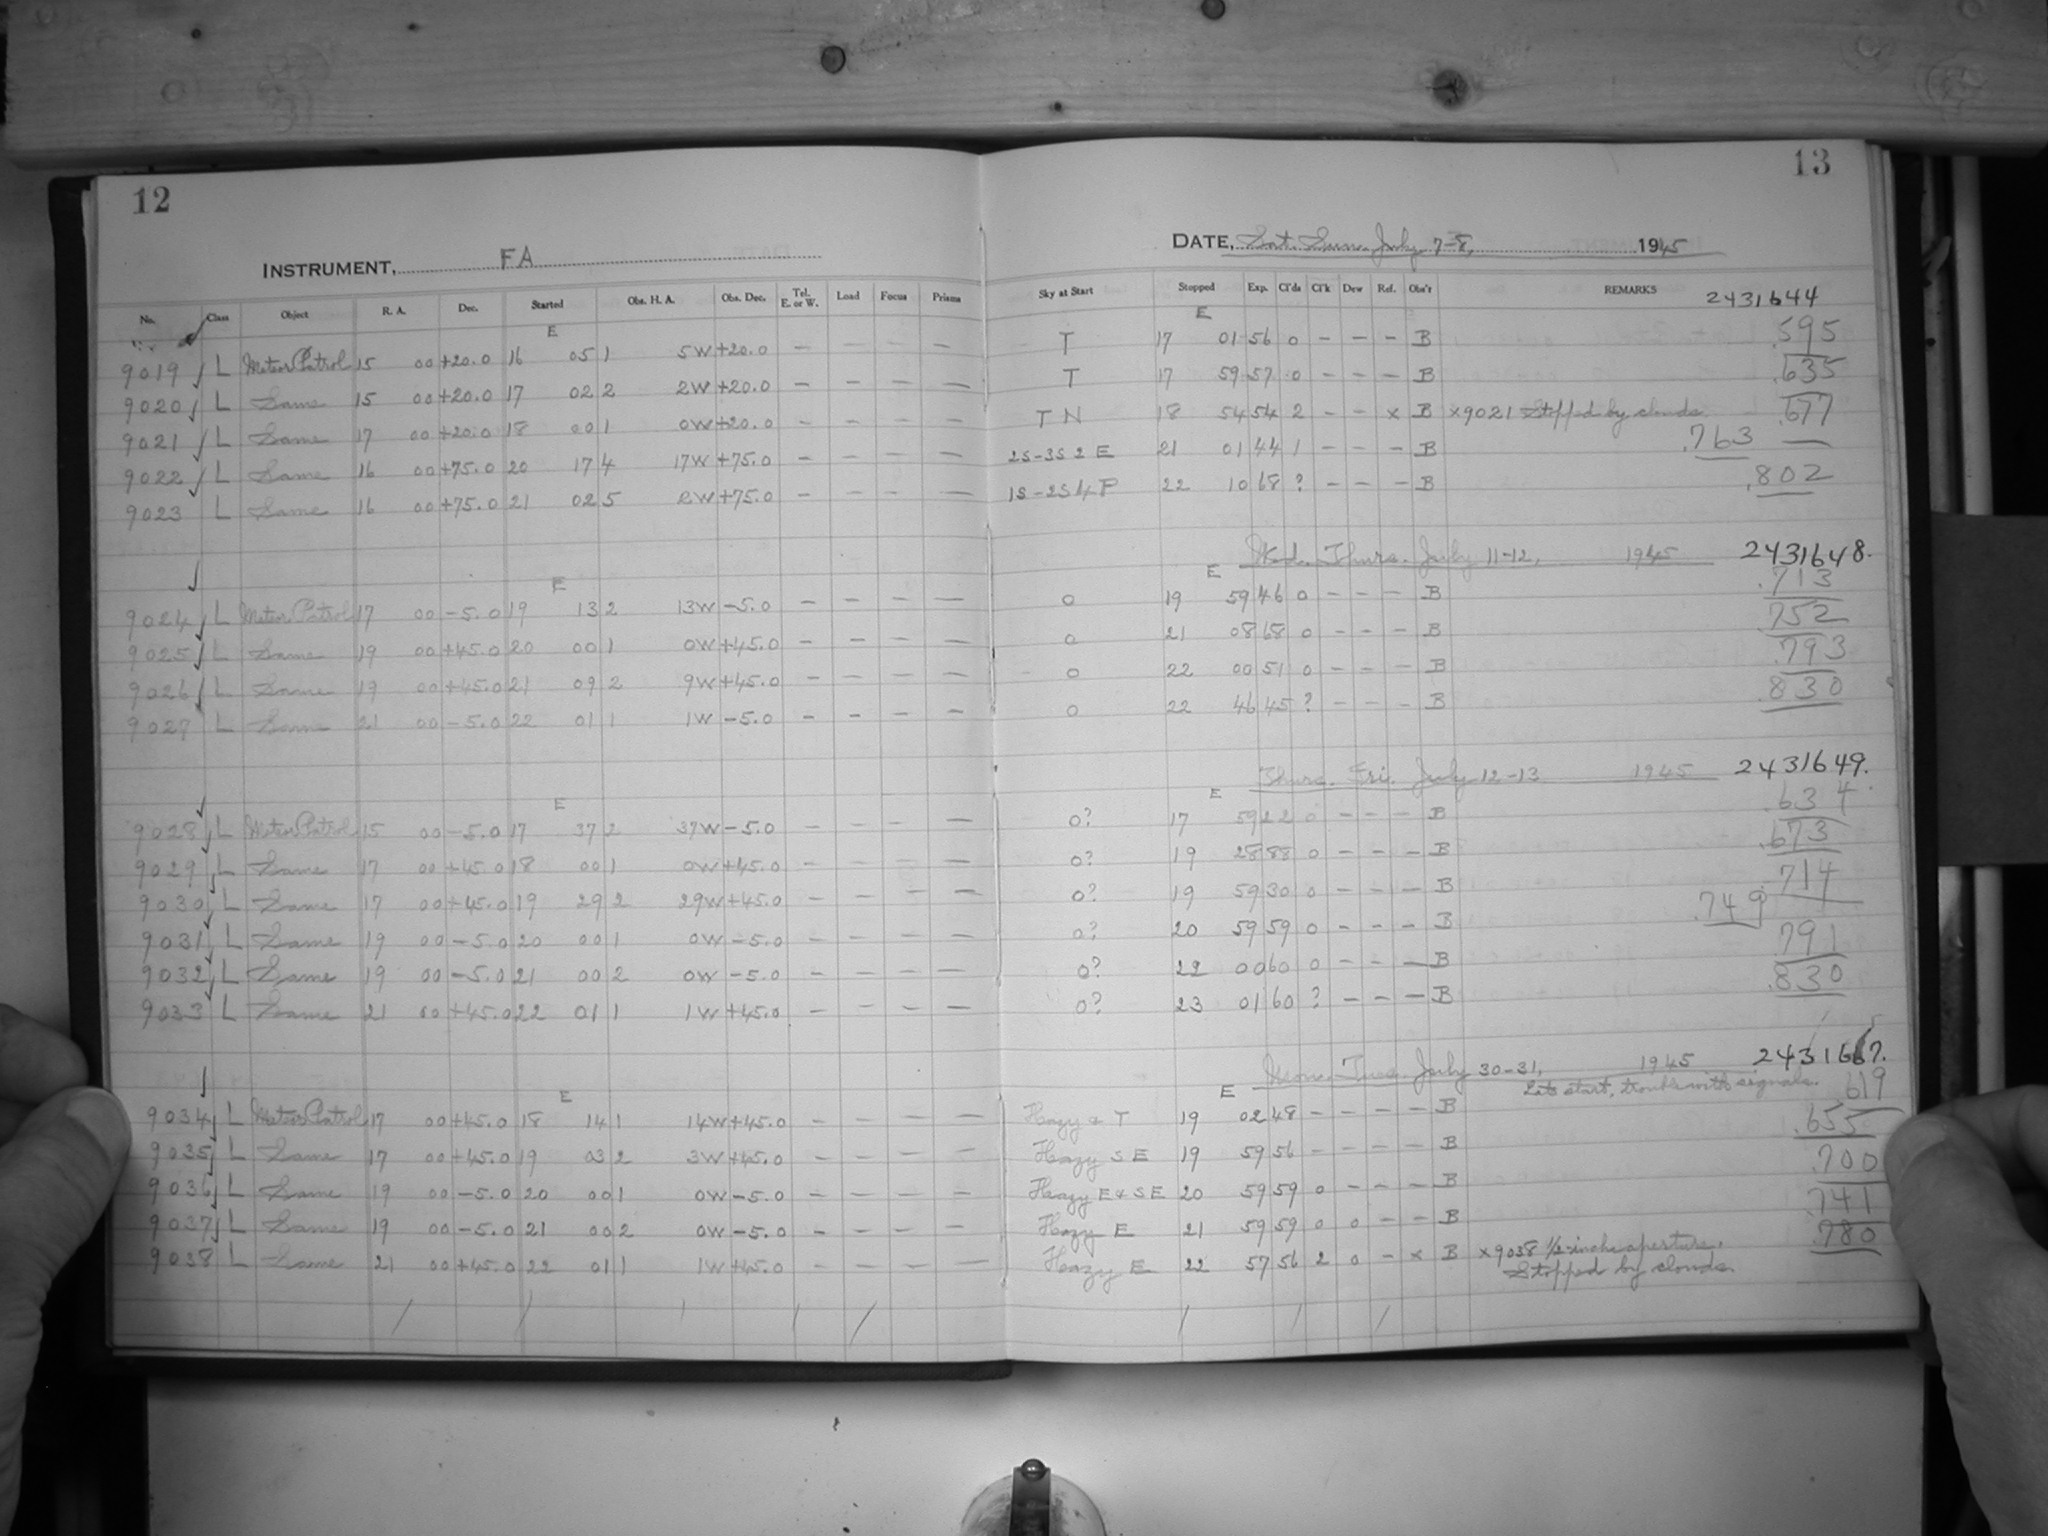 12
INSTRUMENT, FA
No. Class Object R. A. Dec. Started Obs. H. A. Obs. Dec. Tel. E. or W. Load Focus Prisms
E
9019 L Meteor Patrol 15 00 +20.0 16 05 1 5W +20.0 — — — —
9020 L Same 15 00 +20.0 17 02 2 2W +20.0 — — — —
9021 L Same 17 00 +20.0 18 00 1 0W +20.0 — — — —
9022 L Same 16 00 +75.0 20 17 4 17W +75.0 — — — —
9023 L Same 16 00 +75.0 21 02 5 2W +75.0 — — — —
E
9024 L Meteor Patrol 17 00 -5.0 19 13 2 13W -5.0 — — — —
9025 L Same 19 00 +45.0 20 00 1 0W +45.0 — — — —
9026 L Same 19 00 +45.0 21 09 2 9W +45.0 — — — —
9027 L Same 21 00 -5.0 22 01 1 1W -5.0 — — — —
E
9028 L Meteor Patrol 15 00 -5.0 17 37 2 37W -5.0 — — — —
9029 L Same 17 00 +45.0 18 00 1 0W +45.0 — — — —
9030 L Same 17 00 +45.0 19 29 2 29W +45.0 — — — —
9031 L Same 19 00 -5.0 20 00 1 0W -5.0 — — — —
9032 L Same 19 00 -5.0 21 00 2 0W -5.0 — — — —
9033 L Same 21 00 +45.0 22 01 1 1W +45.0 — — — —
E
9034 L Meteor Patrol 17 00 +45.0 18 14 1 14W +45.0 — — — —
9035 L Same 17 00 +45.0 19 03 2 3W +45.0 — — — —
9036 L Same 19 00 -5.0 20 00 1 0W -5.0 — — — —
9037 L Same 19 00 -5.0 21 00 2 0W -5.0 — — — —
9038 L Same 21 00 +45.0 22 01 1 1W +45.0 — — — —
13
DATE, Sat. Sun. July 7-8, 1945
Sky at Start Stopped Exp. Cl'ds Cl'k Dew Ref. Obs'r REMARKS 2431644
E
T 17 01 56 0 — — — B .595
T 17 59 57 0 — — — B .635
T N 18 54 54 2 — — x B x9021 Stopped by clouds. .677
2S-3S 2 E 21 01 44 1 — — — B .763
1S-2S 4 P 22 10 68 ? — — — B .802
Wed. Thurs. July 11-12, 1945 2431648.
E
0 19 59 46 0 — — — B .713
0 21 08 68 0 — — — B .752
0 22 00 51 0 — — — B .793
0 22 46 45 ? — — — B .830
Thurs. Fri. July 12-13 1945 2431649.
E
0? 17 59 22 0 — — — B .634
0? 19 28 88 0 — — — B .673
0? 19 59 30 0 — — — B .714
0? 20 59 59 0 — — — B .749
0? 22 00 60 0 — — — B .791
0? 23 01 60 ? — — — B .830
Mon. Tues. July 30-31, 1945 2431667.
E Late start, trouble with signals.
Hazy & T 19 02 48 — — — — B .619
Hazy S E 19 59 56 — — — — B .655
Hazy E & S E 20 59 59 0 — — — B .700
Hazy E 21 59 59 0 0 — — B .741
Hazy E 22 57 56 2 0 — x B x9038 1/2-inch aperture. .780
Stopped by clouds.